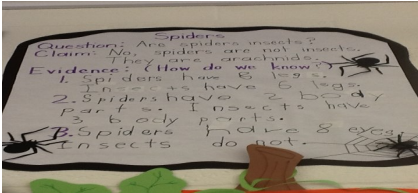 Spiders
Question: Are spiders insects?
Claim: No, spiders are not insects.
They are arachnids.
Evidence: (How do we know?)
1. Spiders have 8 legs.
Insects have 6 legs.
2. Spiders have 2 body
parts. Insects have
3 body parts.
3. Spiders have 8 eyes.
Insects do not.